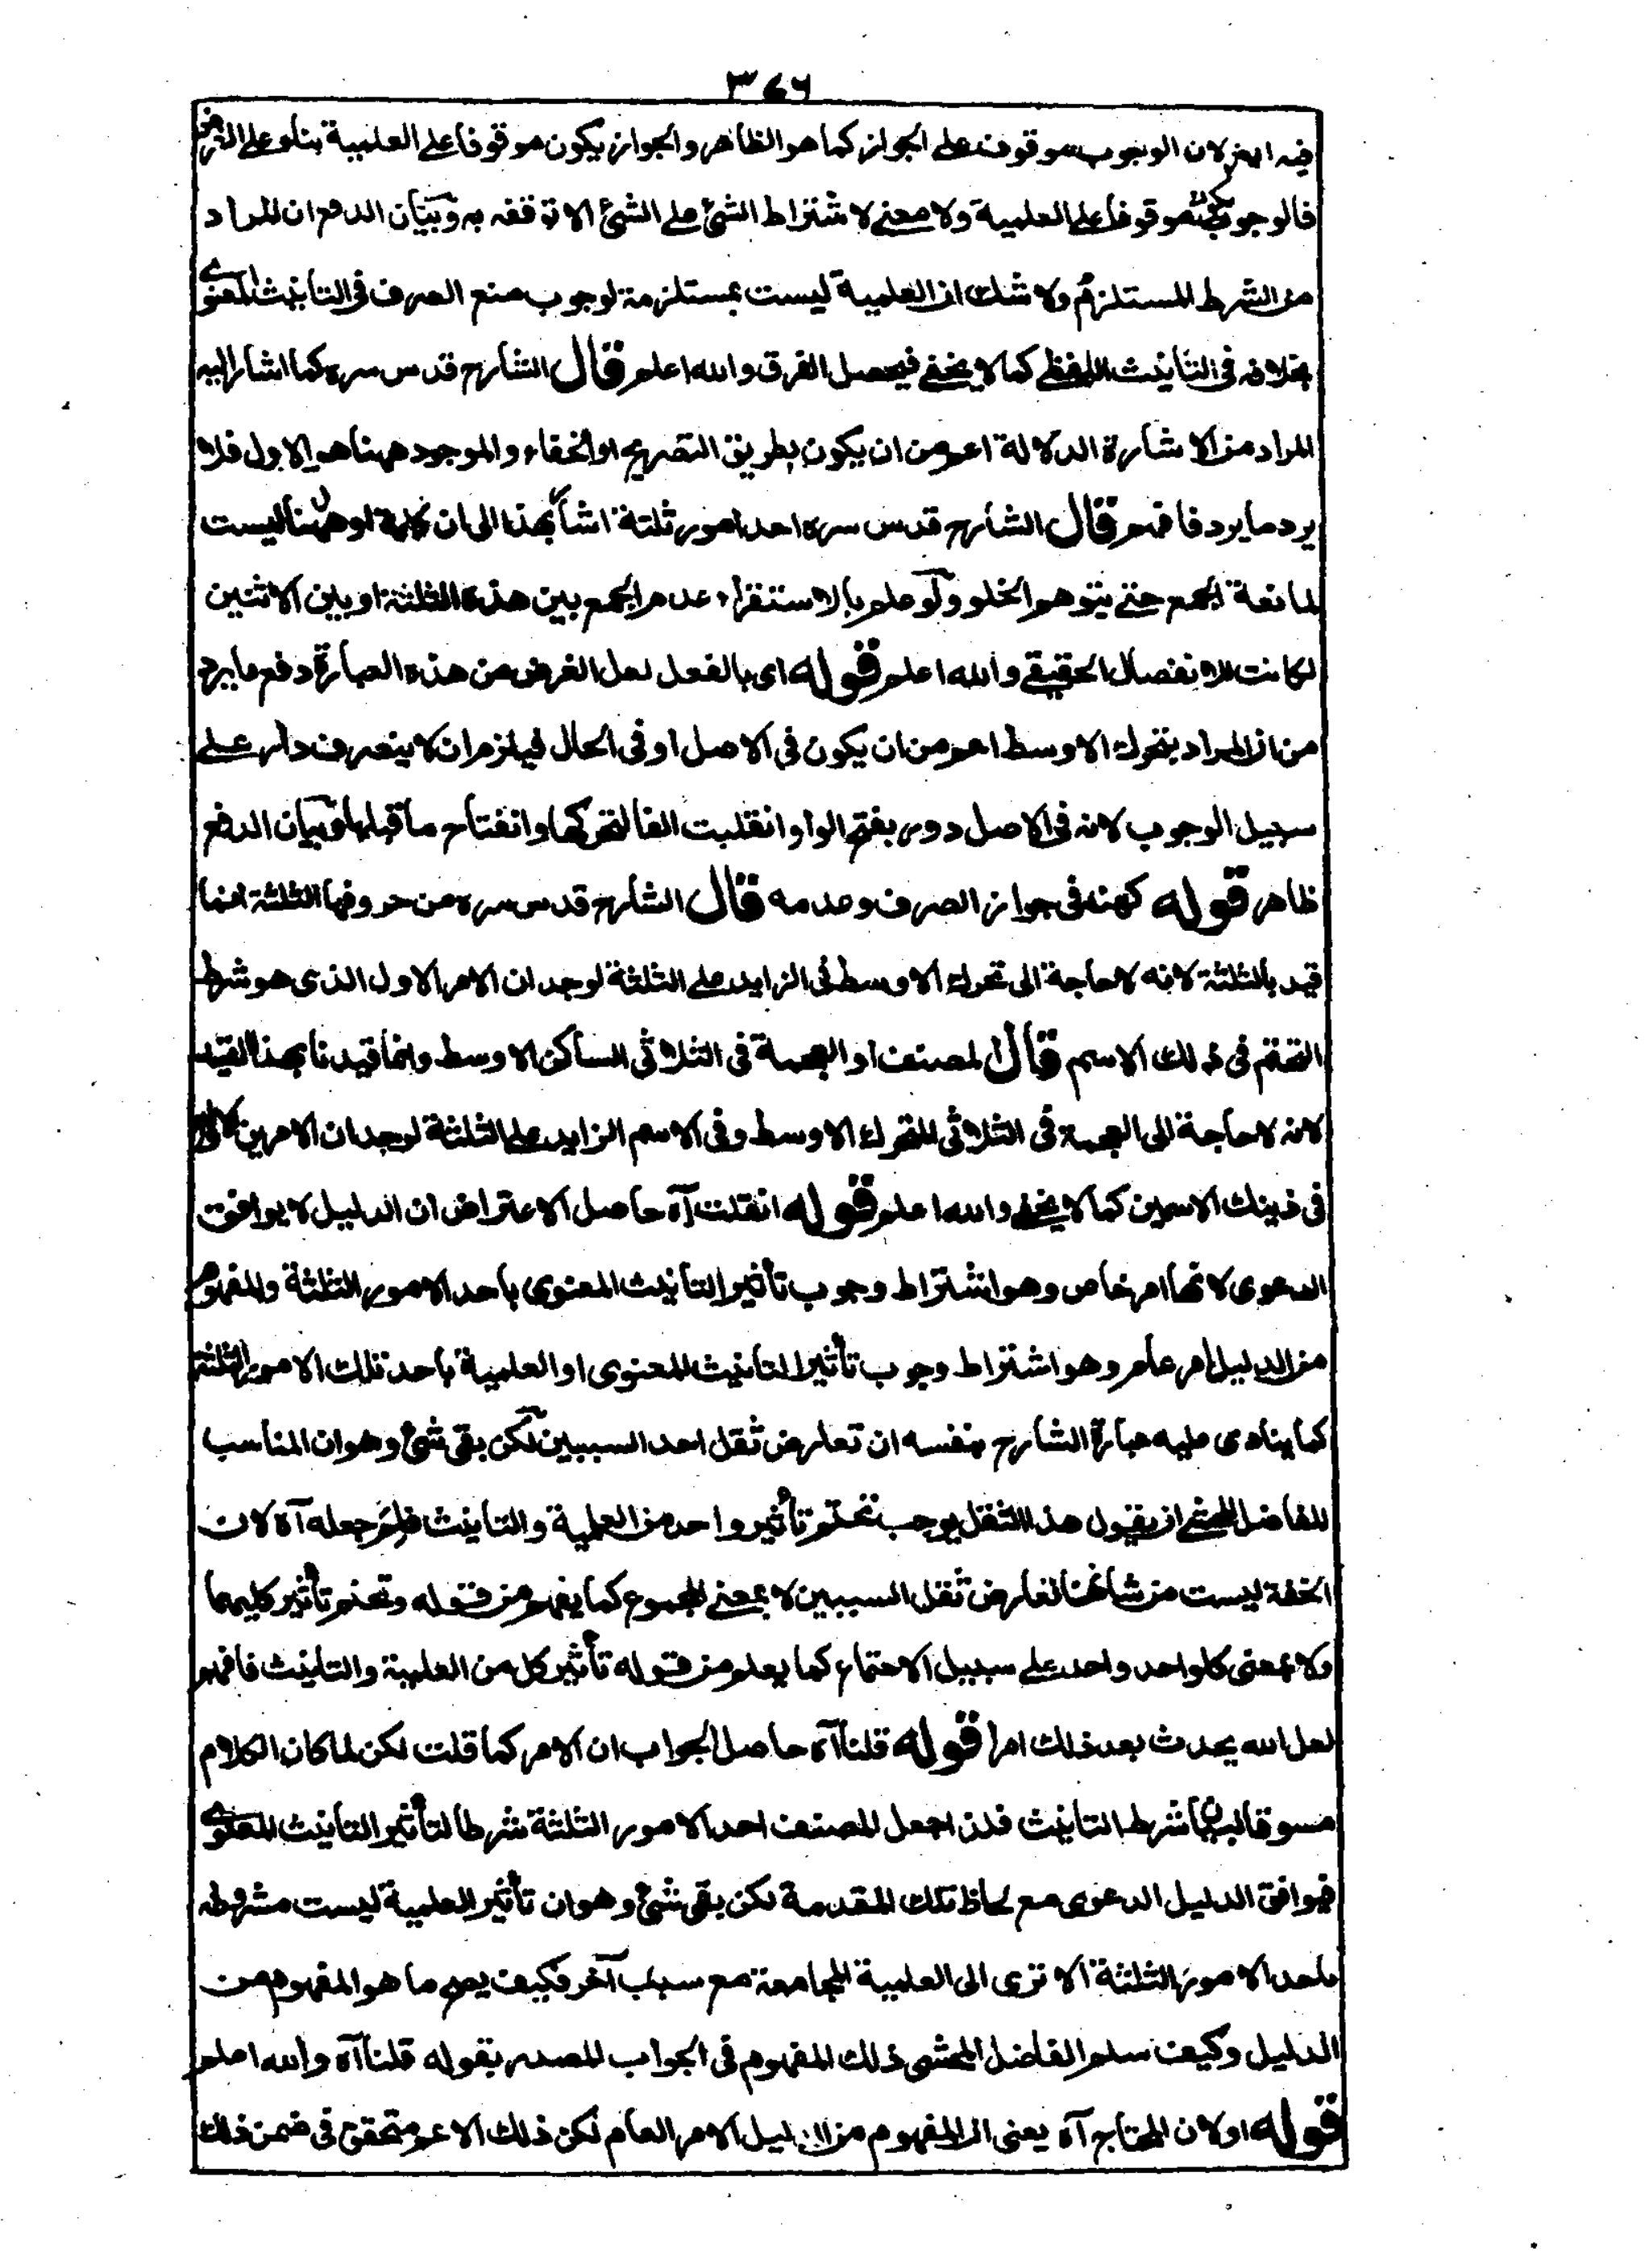 ٣٧٦
فيه ايضا لان الوجوب موقوف على الجواز كما هو الظاهر والجواز يكون موقوفا على العلمية بناء على
فالوجوب يكون موقوفا على العلمية ولا معنى لاشتراط الشئ على الشئ الا توقفه به وبيان الدفع ان المراد
من الشرط المستلزم ولا شك ان العلمية ليست بمستلزمة لوجوب منع الصرف فى التانيث المعنوى
بخلافه فى التانيث اللفظى كما لا يخفى فيحصل الفرق والله اعلم قال الشارح قدس سره كما اشار اليه
المراد من الاشارة الدلالة اعم من ان يكون بطريق التصريح او الخفاء والموجود ههنا هو الاول فلا
يرد ما يرد فافهم قال الشارح قدس سره احد امور ثلثة اشار بهذا الى ان كلمة او ههنا ليست
لمانعة الجمع حتى يتوهم الخلو ولو علم بالاستقراء عدم الجمع بين هذه الثلثة او بين الاثنين
لكانت للانفصال الحقيقى والله اعلم قوله اى بالفعل لعل الغرض من هذه العبارة دفع ما يرد
من ان المراد بتحرك الاوسط اعم من ان يكون فى الاصل او فى الحال فيلزم ان لا ينصرف دار على
سبيل الوجوب لانه فى الاصل دور بفتح الواو انقلبت الفا لتحركها وانفتاح ما قبلها وبيان الدفع
ظاهر قوله كهند فى جواز الصرف وعدمه قال الشارح قدس سره من حروفها الثلثة انما
قيد بالثلثة لانه لا حاجة الى تحرك الاوسط فى الزايد على الثلثة لوجدان الامر الاول الذى هو شرط
التحتم فى ذلك الاسم قال المصنف او العجمة فى الثلاثى الساكن الاوسط وانما قيدنا بهذا القيد
لانه لا حاجة الى العجمة فى الثلاثى المتحرك الاوسط وفى الاسم الزايد على الثلثة لوجدان الامرين
فى ذينك الاسمين كما لا يخفى والله اعلم قوله ان قلت آه حاصل الاعتراض ان الدليل لا يوافق
الدعوى لانها امر خاص وهو اشتراط وجوب تأثير التانيث المعنوى باحد الامور الثلثة والمفهوم
من الدليل امر عام وهو اشتراط وجوب تأثير التانيث المعنوى او العلمية باحد تلك الامور الثلثة
كما ينادى عليه عبارة الشارح بنفسه ان تعارض ثقل احد السببين لكن بقى شئ وهو ان المناسب
للفاضل المحشى ان يقول هذا الثقل يوجب تحتم تأثير واحد من العلمية والتانيث فلم جعله آه لان
الخفة ليست من شانها تعارض ثقل السببين لا بمعنى المجموع كما يفهم من قوله وتحتم تأثير كليهما
ولا بمعنى كل واحد واحد على سبيل الاجتماع كما يعلم من قوله تأثير كل من العلمية والتانيث فافهم
لعل الله يحدث بعد ذلك امرا قوله قلنا آه حاصل الجواب ان الامر كما قلت لكن لما كان الكلام
مسوقا لبيان شرط التانيث فلذا جعل المصنف احد الامور الثلثة شرطا لتأثير التانيث المعنوى
فيوافق الدليل الدعوى مع لحاظ تلك المقدمة لكن بقى شئ وهو ان تأثير العلمية ليست مشروطه
باحد الامور الثلثة الا ترى الى العلمية المجامعة مع سبب آخر فكيف يصح ما هو المفهوم من
الدليل وكيف سلم الفاضل المحشى ذلك المفهوم فى الجواب المصدر بقوله قلنا آه والله اعلم
قوله او لان المحتاج آه يعنى ان المفهوم من الدليل الامر العام لكن ذلك الاعم متحقق فى ضمن ذلك